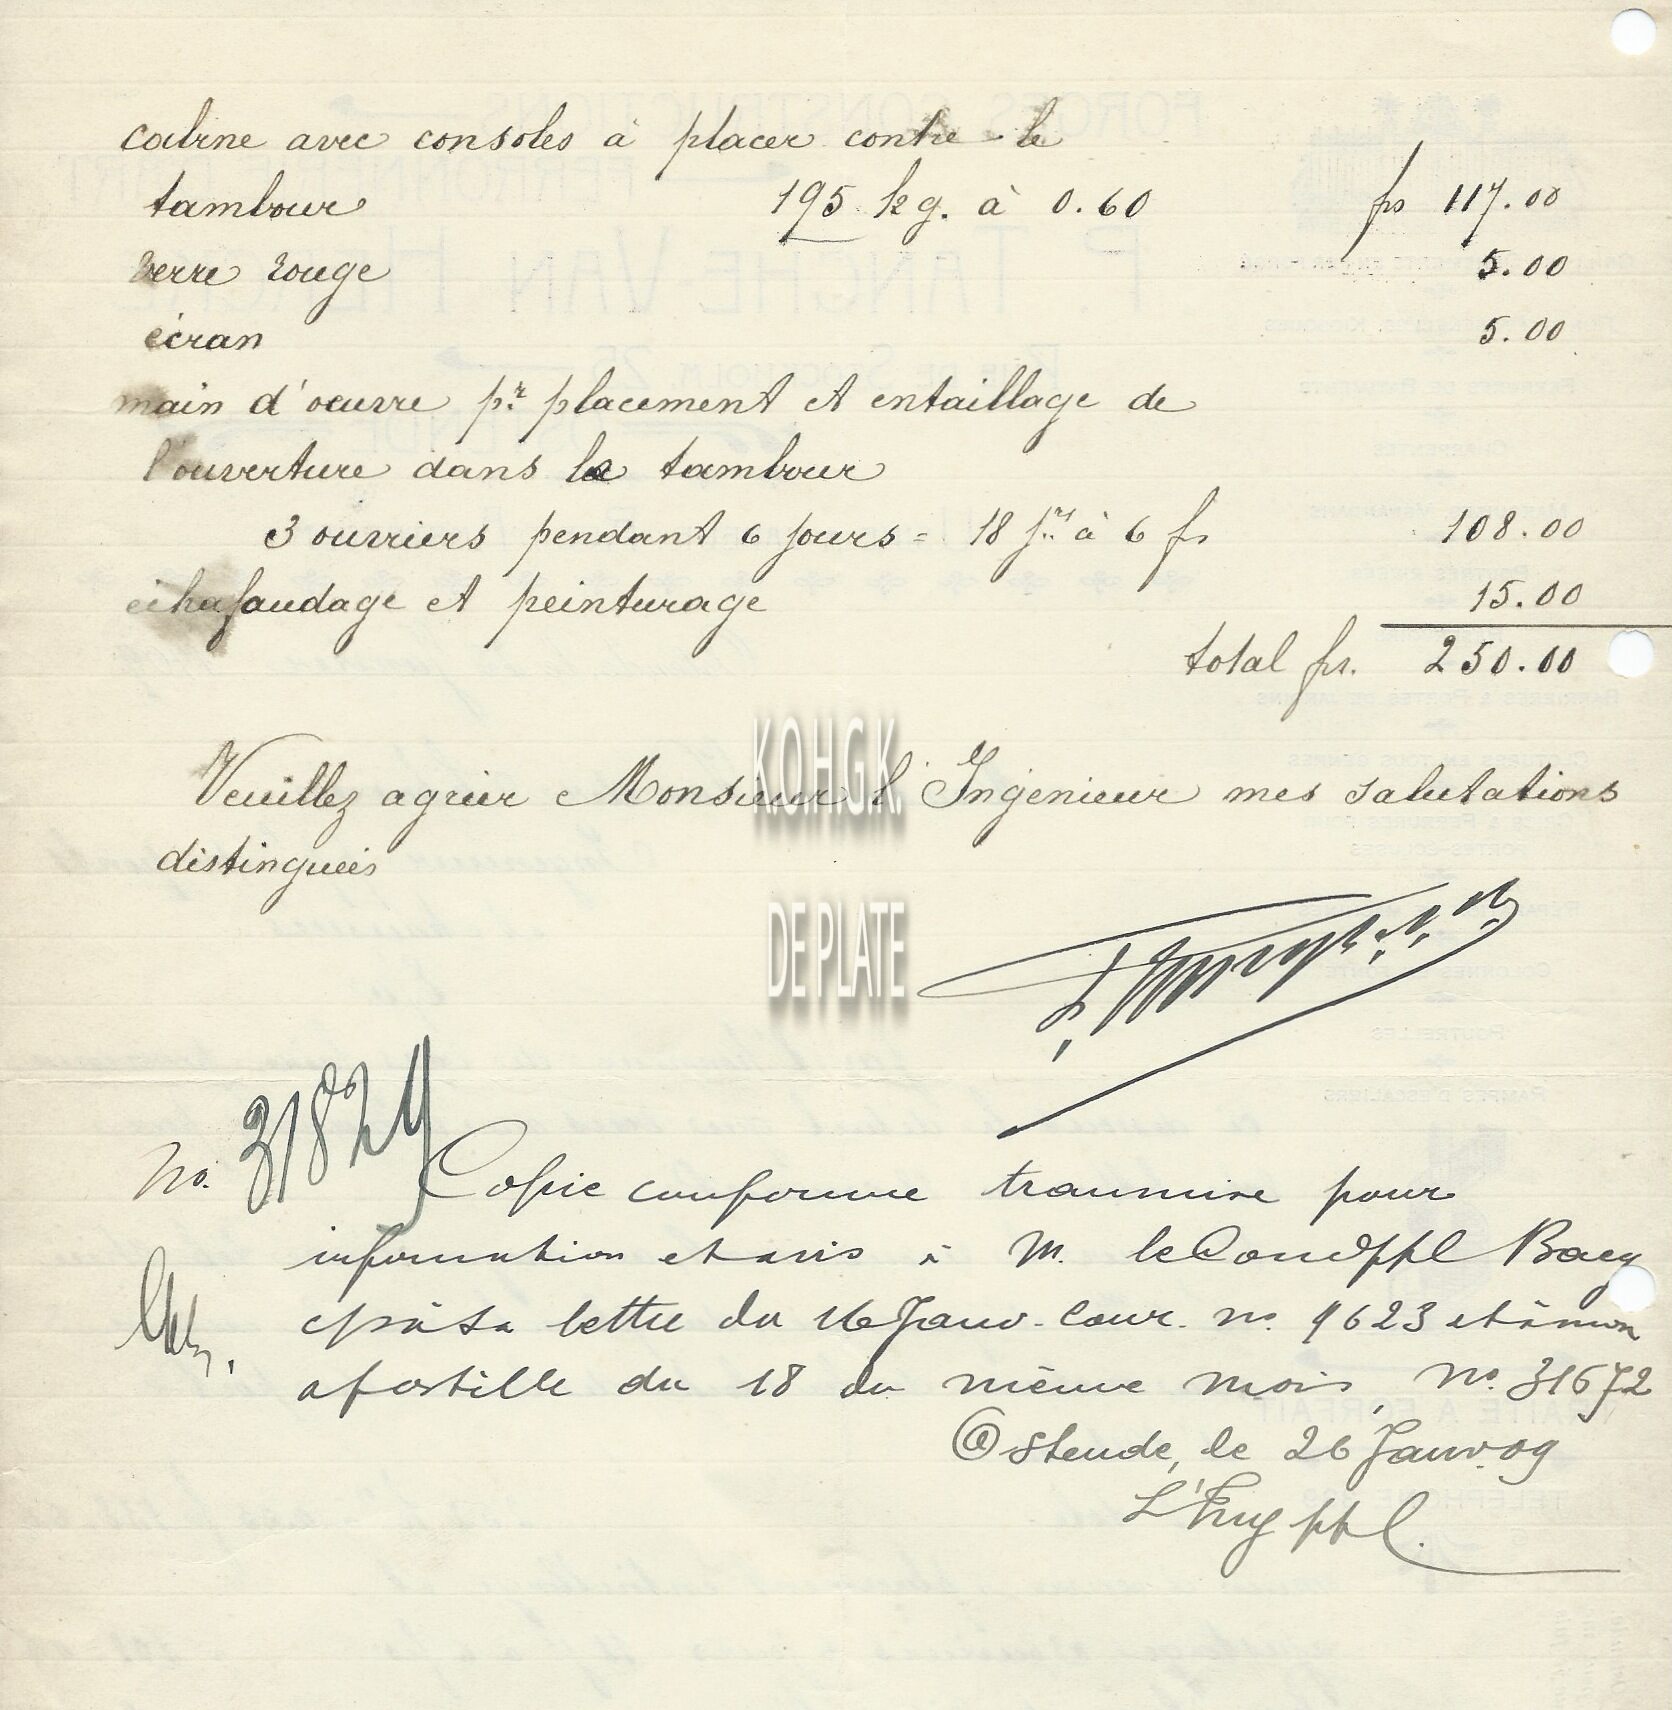 cabine avec consoles à placer contre le
tambour 195 kg. à 0.60 frs 117.00
verre rouge 5.00
écran 5.00
main d'oeuvre pr placement et entaillage de
l'ouverture dans le tambour
3 ouvriers pendant 6 jours = 18 jrs à 6 frs 108.00
échafaudage et peinturage 15.00
total frs. 250.00
Veuillez agréer Monsieur l'Ingénieur mes salutations
distinguées
K.O.H.G.K.
DE PLATE
No. 31824
Copie conforme transmise pour
information et avis à M. le Cond ppl Baey
après sa lettre du 16 Janv. cour. no. 9623 et à mon
apostille du 18 du même mois, No. 31672
Ostende, le 26 Janv. 09
L'Ing ppl.